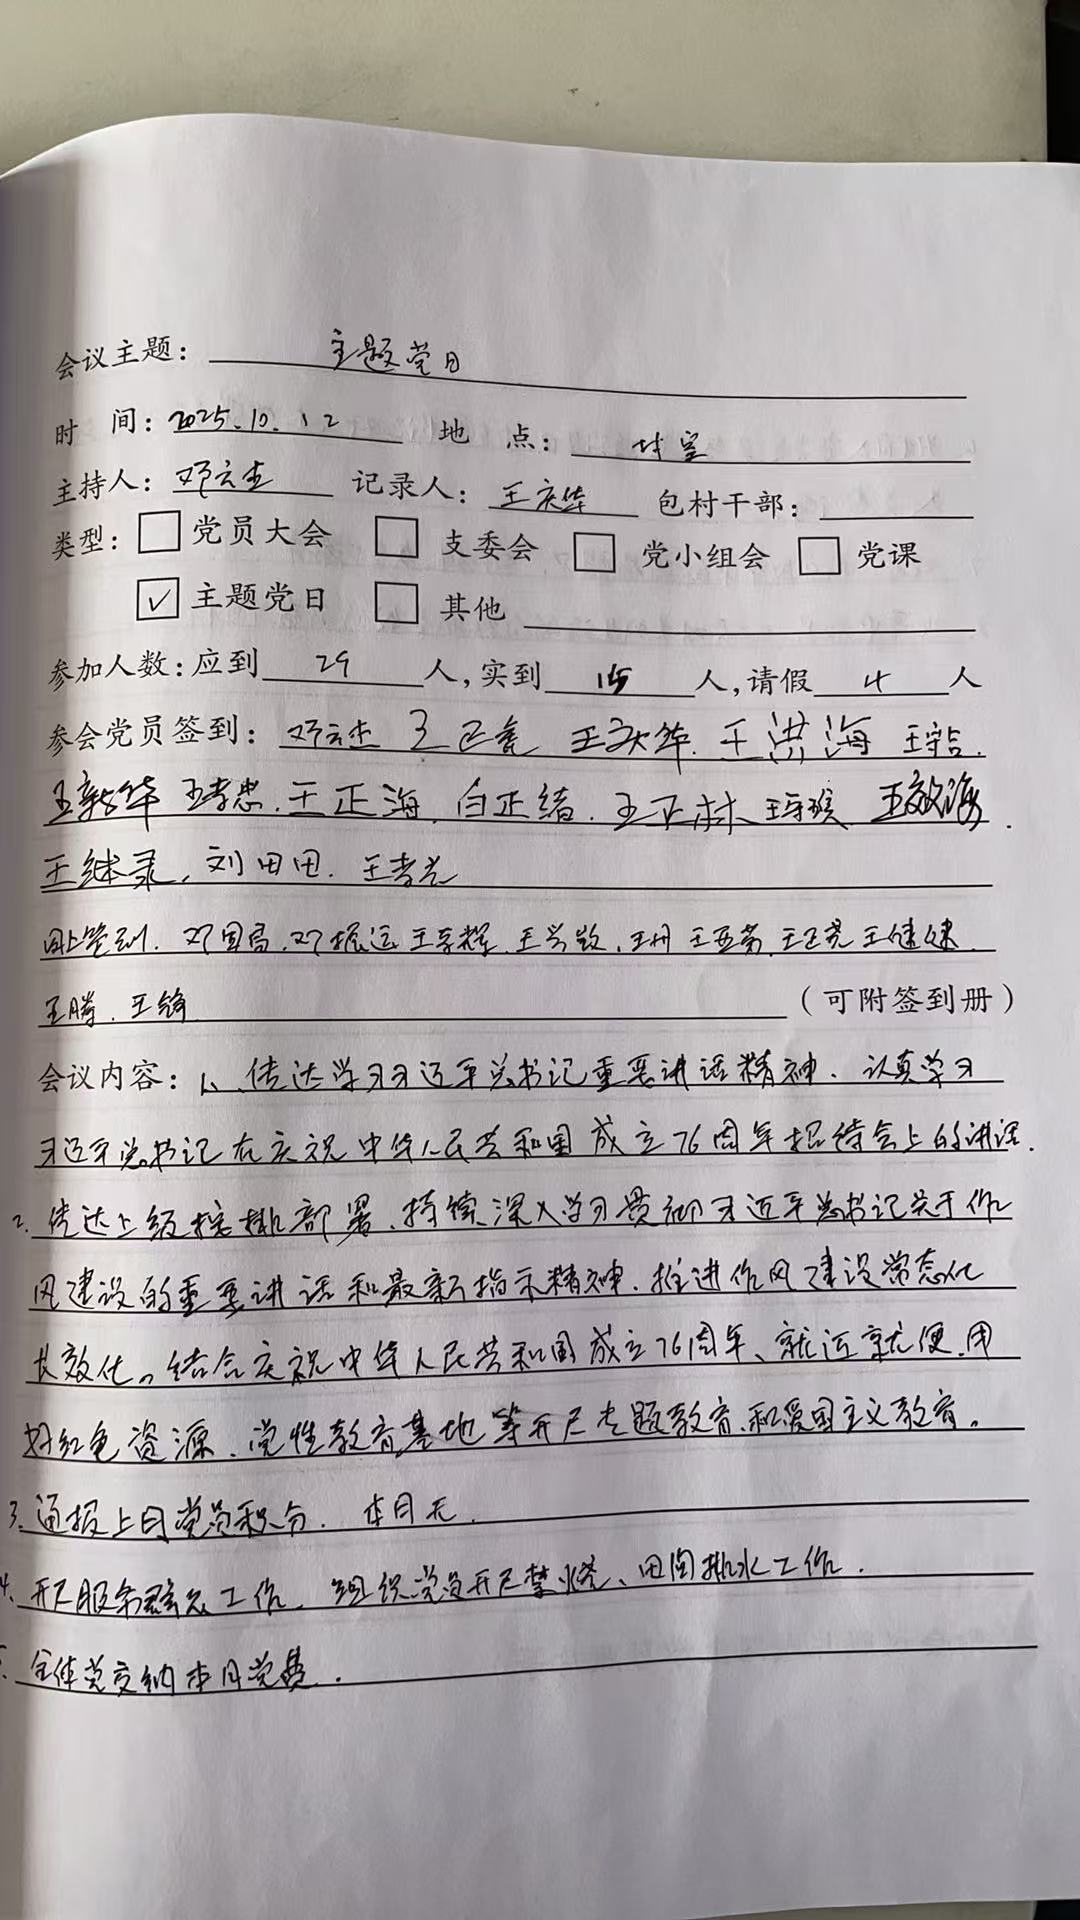 会议主题： 主题党日
时 间：2025.10.12 地 点： 村室
主持人：邓云杰 记录人：王庆华 包村干部：
类型： 党员大会 支委会 党小组会 党课
✓ 主题党日 其他
参加人数：应到 29 人，实到 15 人，请假 4 人
参会党员签到：邓云杰 王庆华. 王洪海
王新华 王孝忠. 王正海. 白正绪. 王正林 王敬海.
王继录, 刘田田. 王孝光
线上签到. 邓国富. 邓振运 王丹 王健健.
王腾. 王锋 （可附签到册）
会议内容：1、传达学习习近平总书记重要讲话精神. 认真学习
习近平总书记在庆祝中华人民共和国成立76周年招待会上的讲话.
2. 传达上级安排部署、持续深入学习贯彻习近平总书记关于作
风建设的重要讲话和最新指示精神. 推进作风建设常态化
长效化。结合庆祝中华人民共和国成立76周年、就近就便.用
好红色资源、党性教育基地等开展专题教育.和爱国主义教育。
3. 通报上月党员积分. 本月无.
4. 开展服务群众工作. 组织党员开展禁烧、田间排水工作.
全体党交纳本月党费.